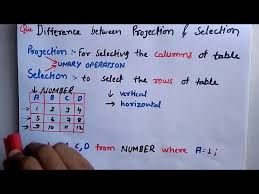 Que Difference between Projection & Selection
Projection :- For Selecting the columns of table
UNARY OPERATION
Selection :- to select the rows of table
↓ NUMBER
↓ vertical
→ horizontal
A B C D
1 2 3 4
5 6 7 8
9 10 11 12
C, D from NUMBER where A=1;